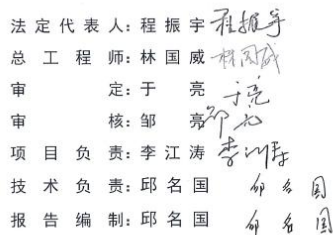 法定代表人：程振宇 程振宇
总工程师：林国威 林国威
审定：于亮 于亮
审核：邹亮 邹亮
项目负责：李江涛 李江涛
技术负责：邱名国 邱名国
报告编制：邱名国 邱名国